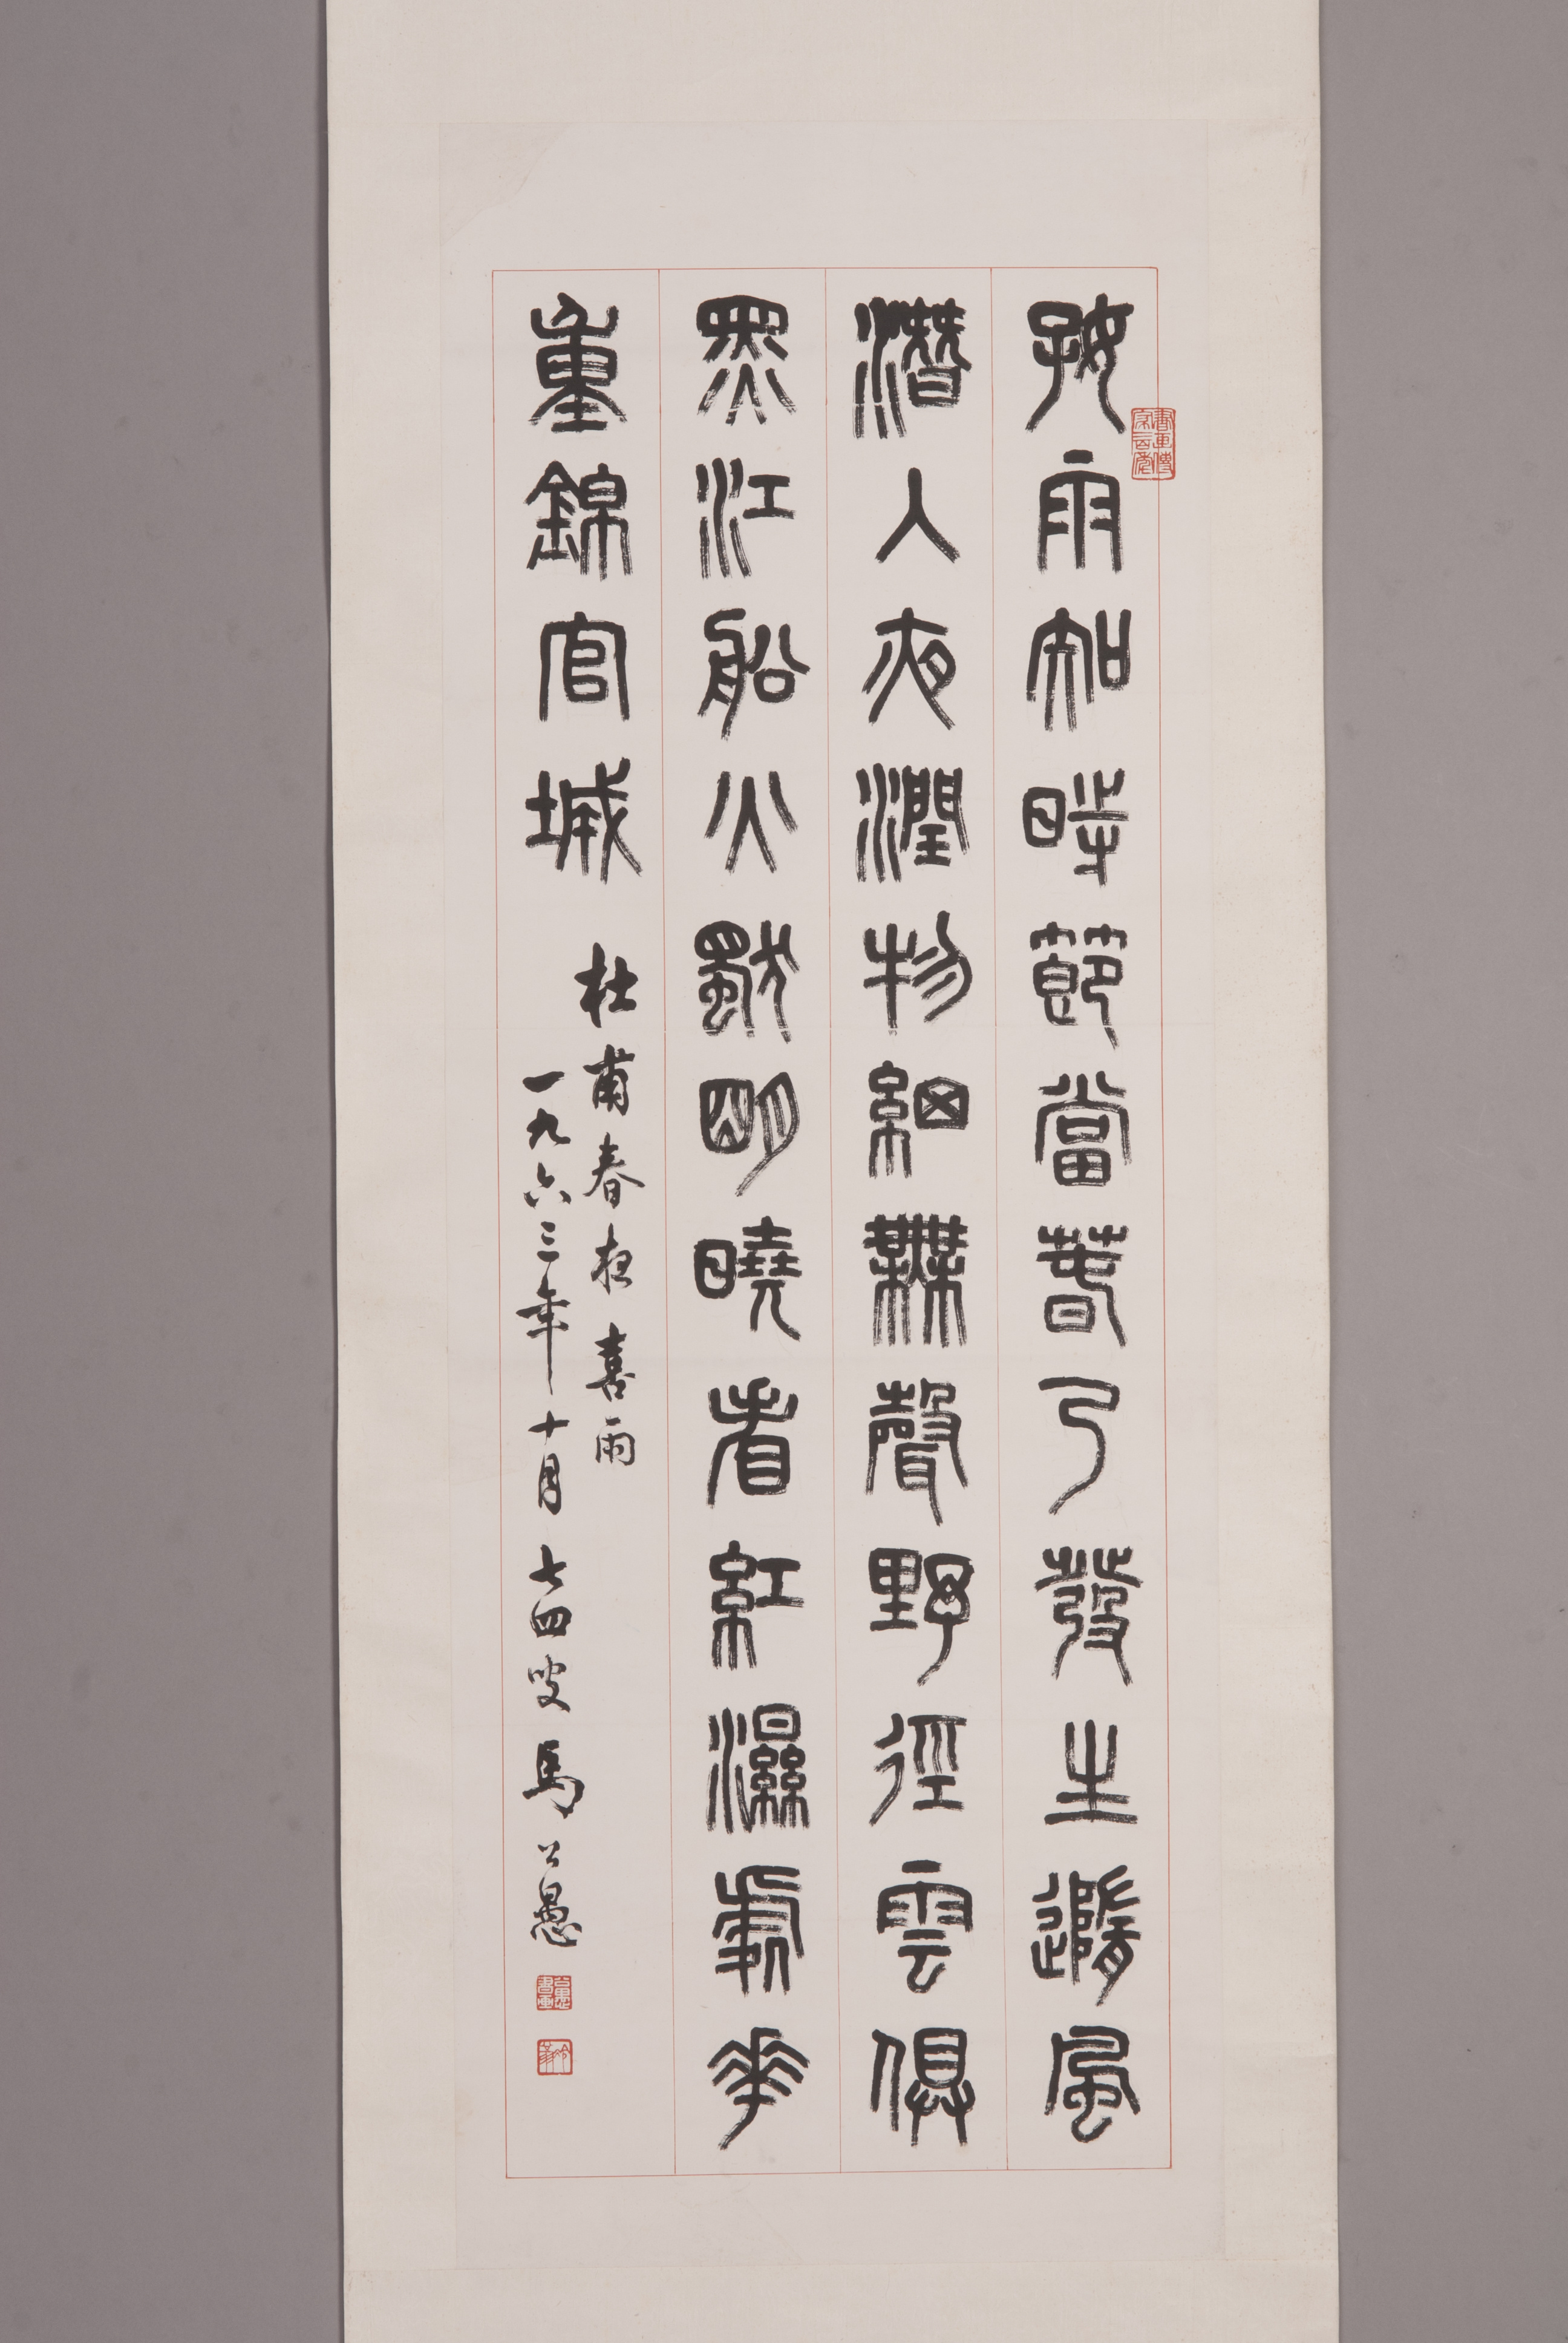 好雨知時節當春乃發生隨風
潛入夜潤物細無聲野徑雲俱
黑江船火獨明曉看紅濕處花
重錦官城
杜甫春夜喜雨
一九六三年十月七四叟馬公愚
公愚書畫